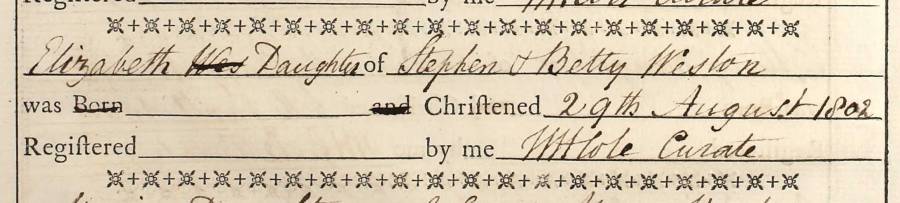 Registered by me
Elizabeth Wes Daughter of Stephen & Betty Weston
was Born and Chriſtened 29th August 1802
Regiſtered by me WHCole Curate